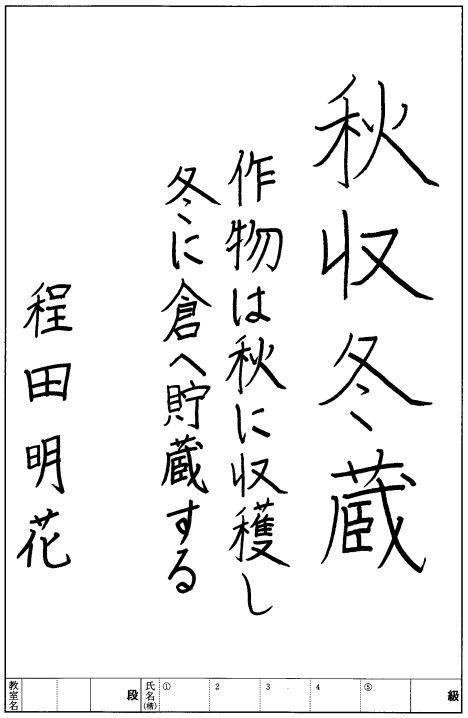 秋収冬蔵
作物は秋に収穫し
冬に倉へ貯蔵する
程田明花
教室名 段 氏名(楷) ① 2 3 4 ⑤ 級